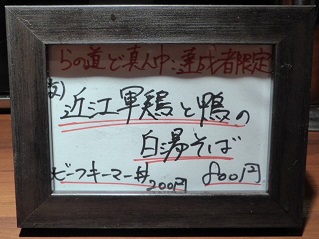 らの道ど真ん中:達成者限定
(友)
近江軍鶏と鴨の
白湯そば
ビーフキーマ丼 200円 800円